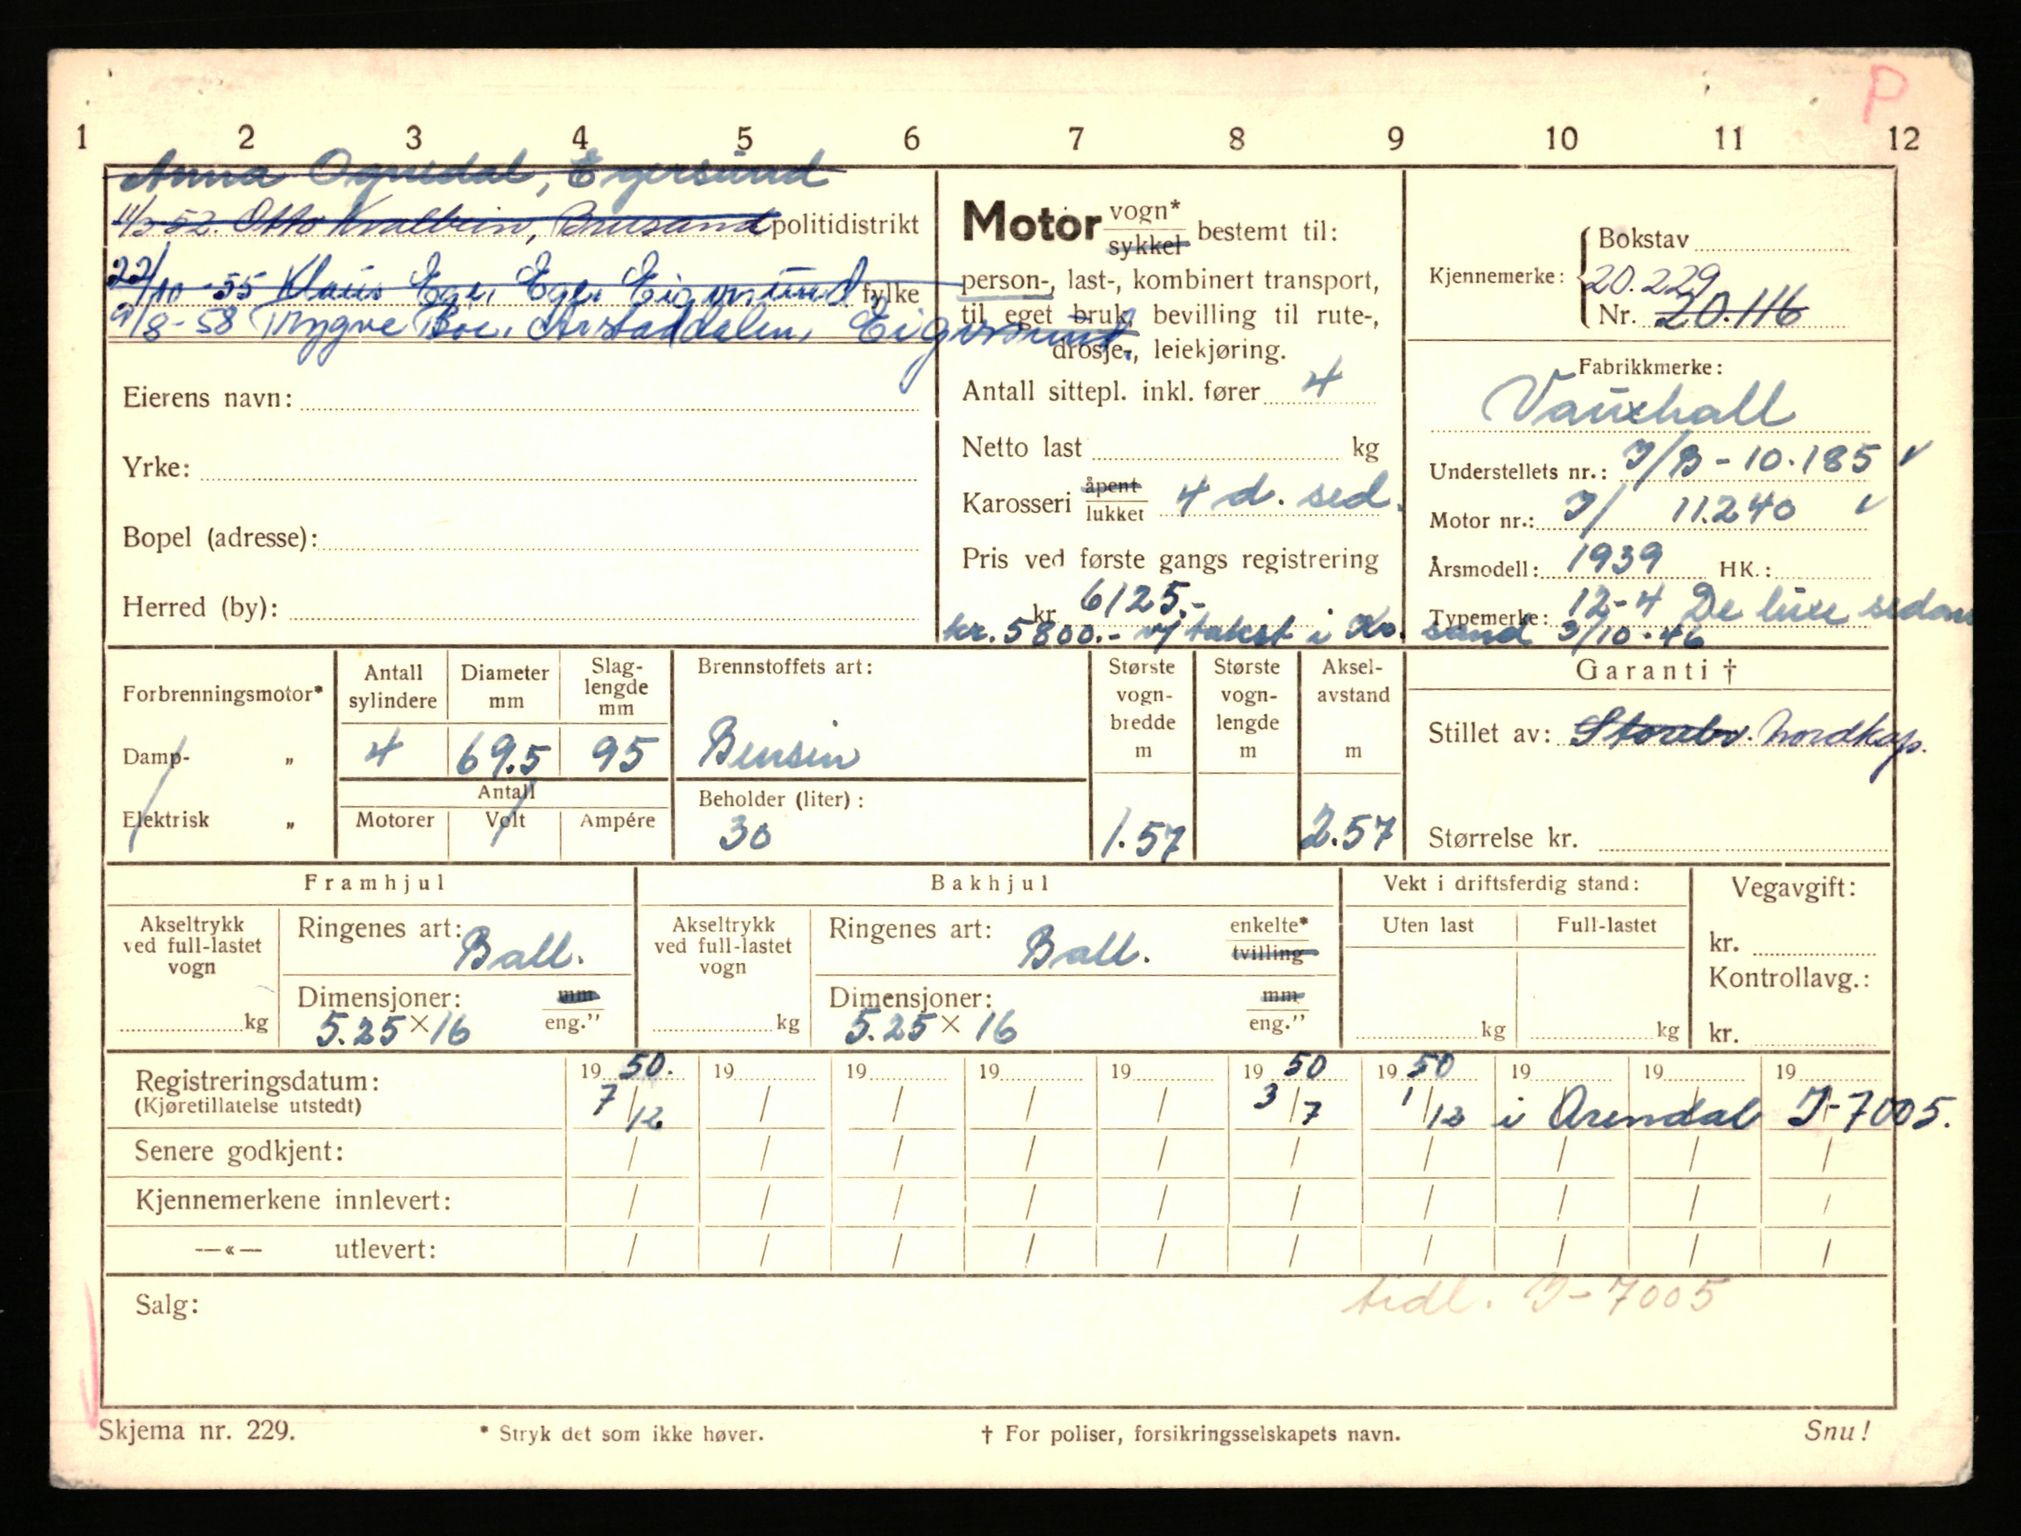 P
1 2 3 4 5 6 7 8 9 10 11 12
Anna Ognedal, Egersund
11/3-52. Otto Kvalbein, Brusand politidistrikt
22/10-55 Klaus Ege, Ege, Eigersund fylke
9/8-58 Trygve Boe, Årstaddalen, Eigersund
Eierens navn:
Yrke:
Bopel (adresse):
Herred (by):
Motor vogn* sykkel bestemt til:
person-, last-, kombinert transport,
til eget bruk, bevilling til rute-,
drosje-, leiekjøring.
Antall sittepl. inkl. fører 4
Netto last kg
Karosseri åpent lukket 4 d. sed.
Pris ved første gangs registrering
kr. 6125.-
kr. 5800.- v/ takst i Kr. sand 3/10-46
Kjennemerke: Bokstav
20.229
Nr. 20.116
Fabrikkmerke:
Vauxhall
Understellets nr.: I/B-10.185 ✓
Motor nr.: I/ 11.240 ✓
Årsmodell: 1939 HK.:
Typemerke: 12-4 De luxe sedan
Forbrenningsmotor*
Damp- „
Elektrisk „
Antall sylindere
4
Diameter mm
69.5
Slag-lengde mm
95
Antall
Motorer Volt Ampére
Brennstoffets art:
Bensin
Beholder (liter):
30
Største vogn-bredde m
1.57
Største vogn-lengde m
Aksel-avstand m
2.57
Garanti †
Stillet av: Storebr. Nordkap.
Størrelse kr.
Framhjul
Akseltrykk ved full-lastet vogn
kg
Ringenes art: Ball.
Dimensjoner: mm eng."
5.25 × 16
Bakhjul
Akseltrykk ved full-lastet vogn
kg
Ringenes art: Ball. enkelte* tvilling
Dimensjoner: mm eng."
5.25 × 16
Vekt i driftsferdig stand:
Uten last Full-lastet
kg kg
Vegavgift:
kr.
Kontrollavg.:
kr.
Registreringsdatum: 19 50. 19 19 19 19 19 50 19 50 19 19 19
(Kjøretillatelse utstedt) 7/12 / / / / 3/7 1/12 i Arendal I-7005.
Senere godkjent: / / / / / / / / / /
Kjennemerkene innlevert: / / / / / / / / / /
—«— utlevert: / / / / / / / / / /
Salg:
tidl. I-7005
Skjema nr. 229.
* Stryk det som ikke høver.
† For poliser, forsikringsselskapets navn.
Snu!